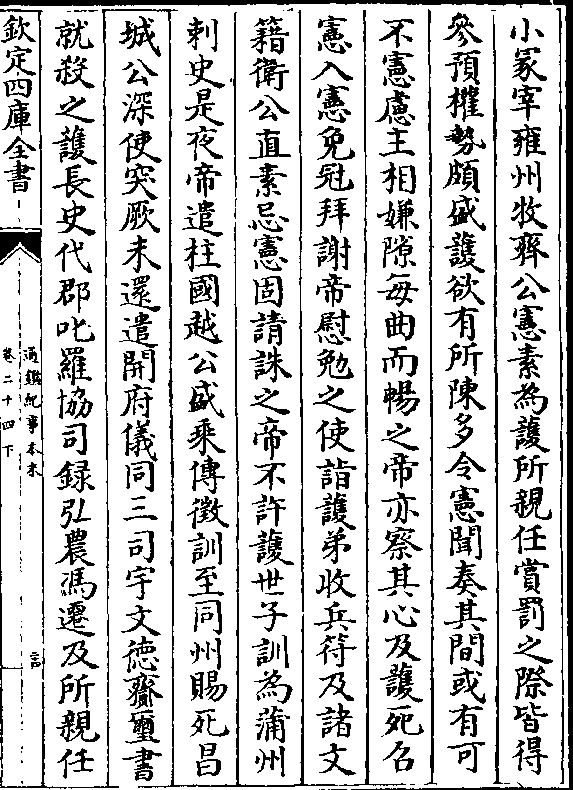 小冡宰雍州牧齊公憲素為護所親任賞罰之際皆得
參預權勢頗盛護欲有所陳多令憲聞奏其間或有可
不憲慮主相嫌隙每曲而暢之帝亦察其心及護死召
憲入憲免冠拜謝帝慰勉之使詣護弟收兵符及諸文
籍衛公直素忌憲固請誅之帝不許護世子訓為蒲州
刺史是夜帝遣柱國越公盛乘傳徵訓至同州賜死昌
城公深使突厥未還遣開府儀同三司宇文德齎璽書
就殺之護長史代郡叱羅協司録弘農馮遷及所親任
欽定四庫全書
通鑑紀事本末
卷二十四下